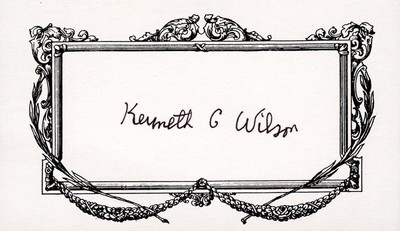 Kenneth G Wilson